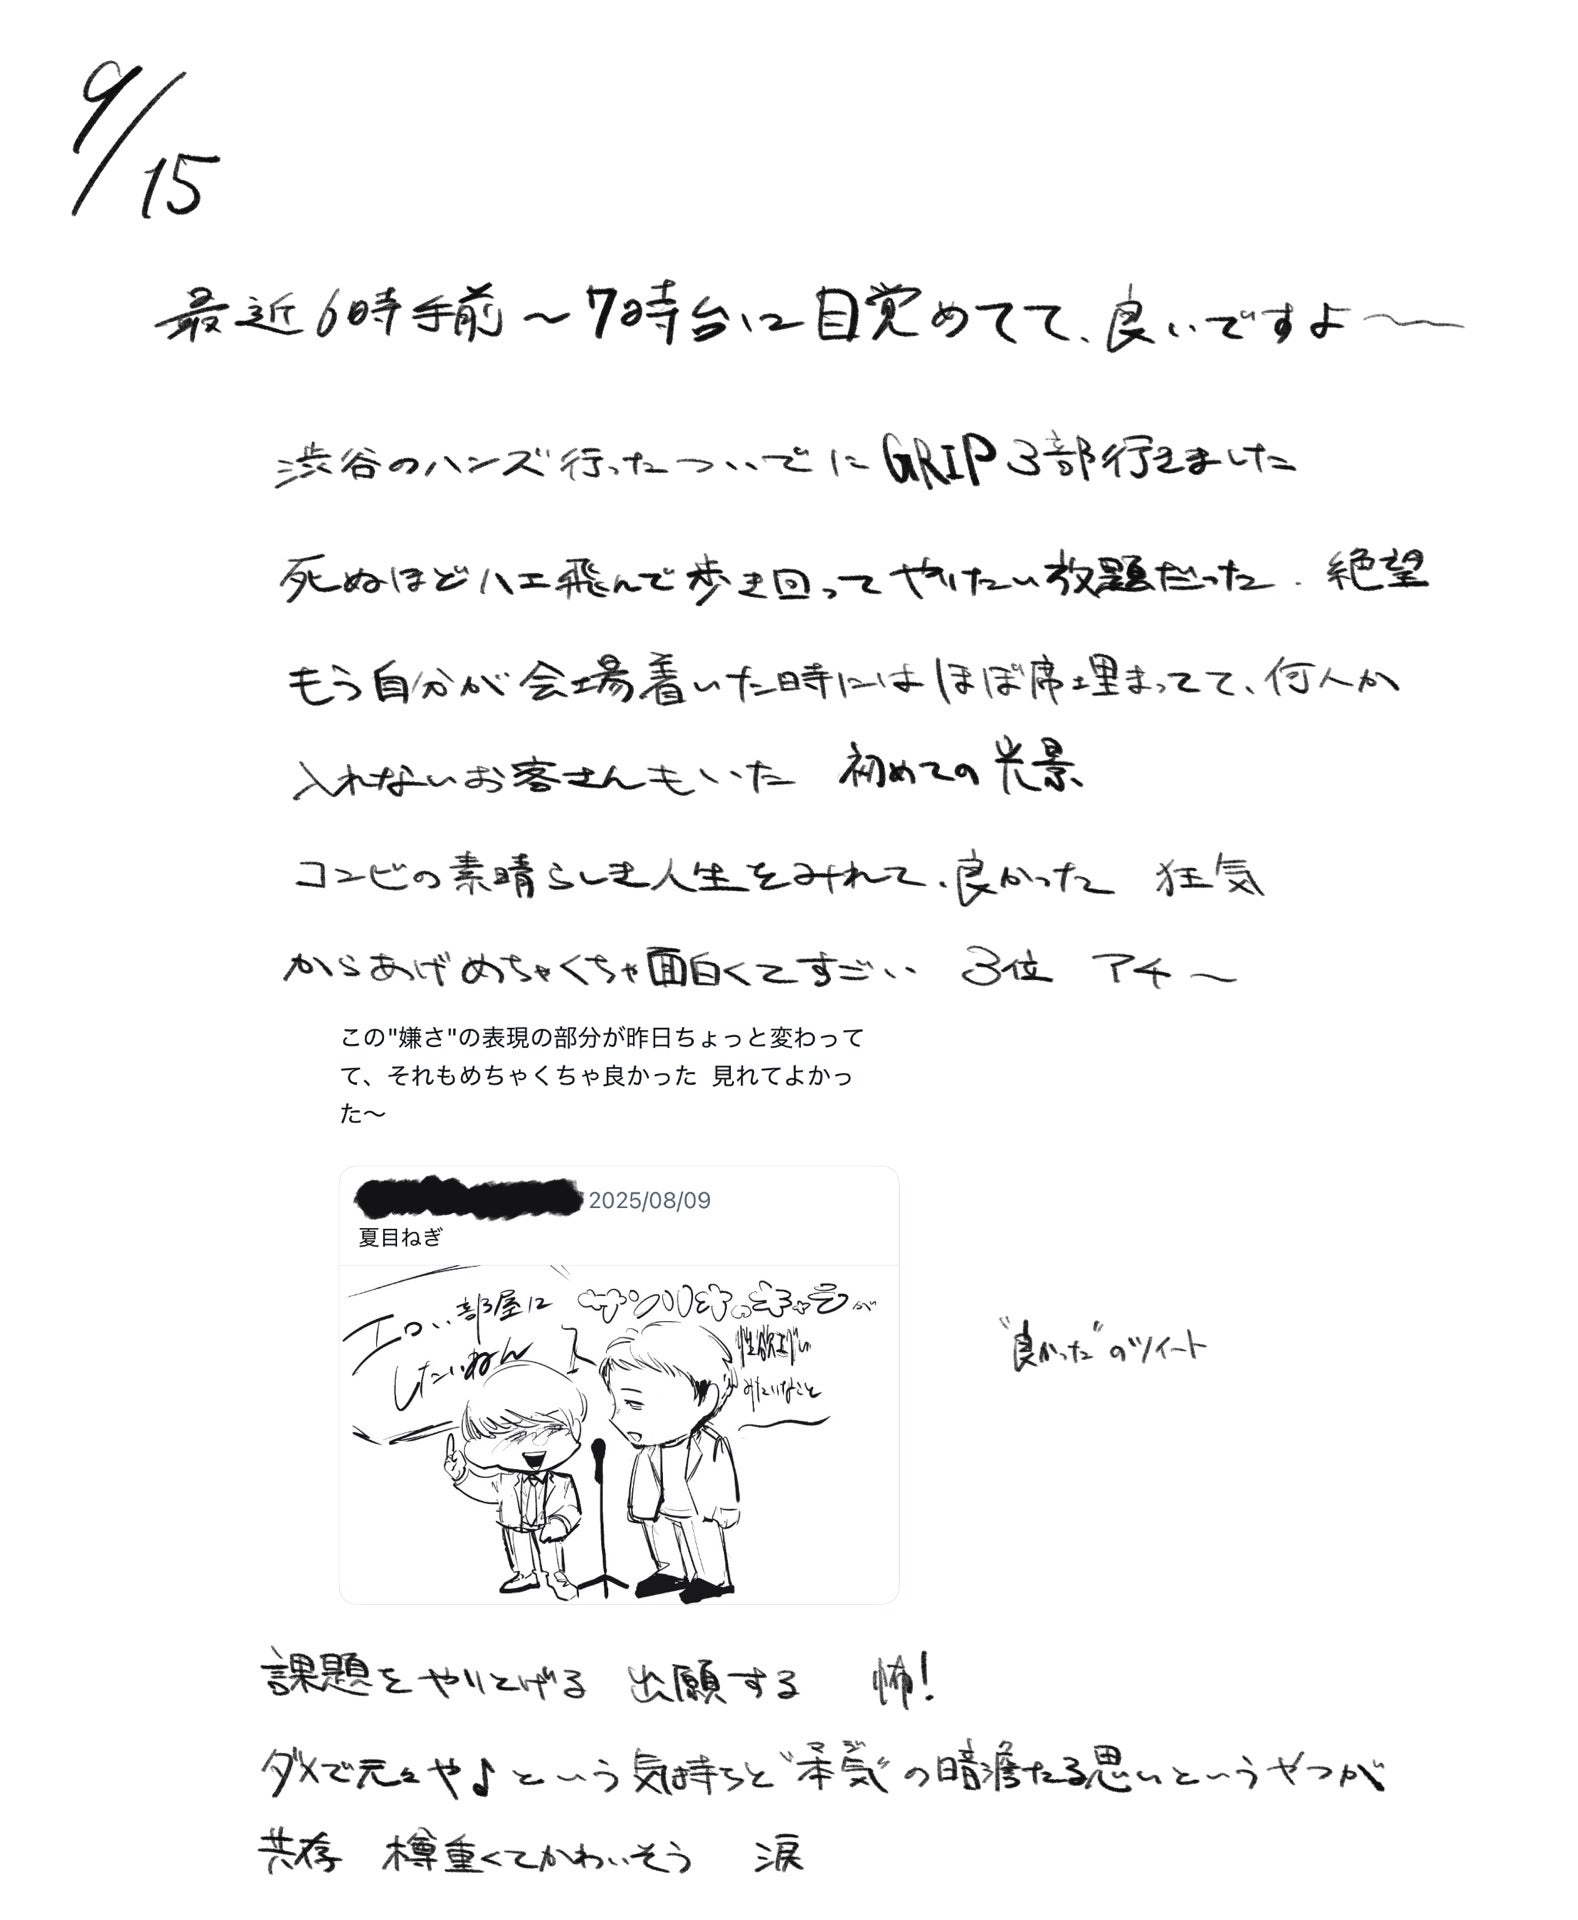 9/15
最近6時手前～7時台に目覚めてて、良いですよ～～
渋谷のハンズ行ったついでにGRIP3部行きました
死ぬほどハエ飛んで歩き回ってやりたい放題だった. 絶望
もう自分が会場着いた時にはほぼ席埋まってて、何人か
入れないお客さんもいた 初めての光景
コンビの素晴らしき人生をみれて、良かった 狂気
からあげめちゃくちゃ面白くてすごい 3位 アチ～
この"嫌さ"の表現の部分が昨日ちょっと変わって
て、それもめちゃくちゃ良かった 見れてよかっ
た～
2025/08/09
夏目ねぎ
エロい部屋に
したいねん
が
性欲エグい
みたいなこと
"良かった"のツイート
課題をやりとげる 出願する 怖!
ダメで元々や♪という気持ちと"本気"の暗澹たる思いというやつが
マジ
共存 樽重くてかわいそう 涙